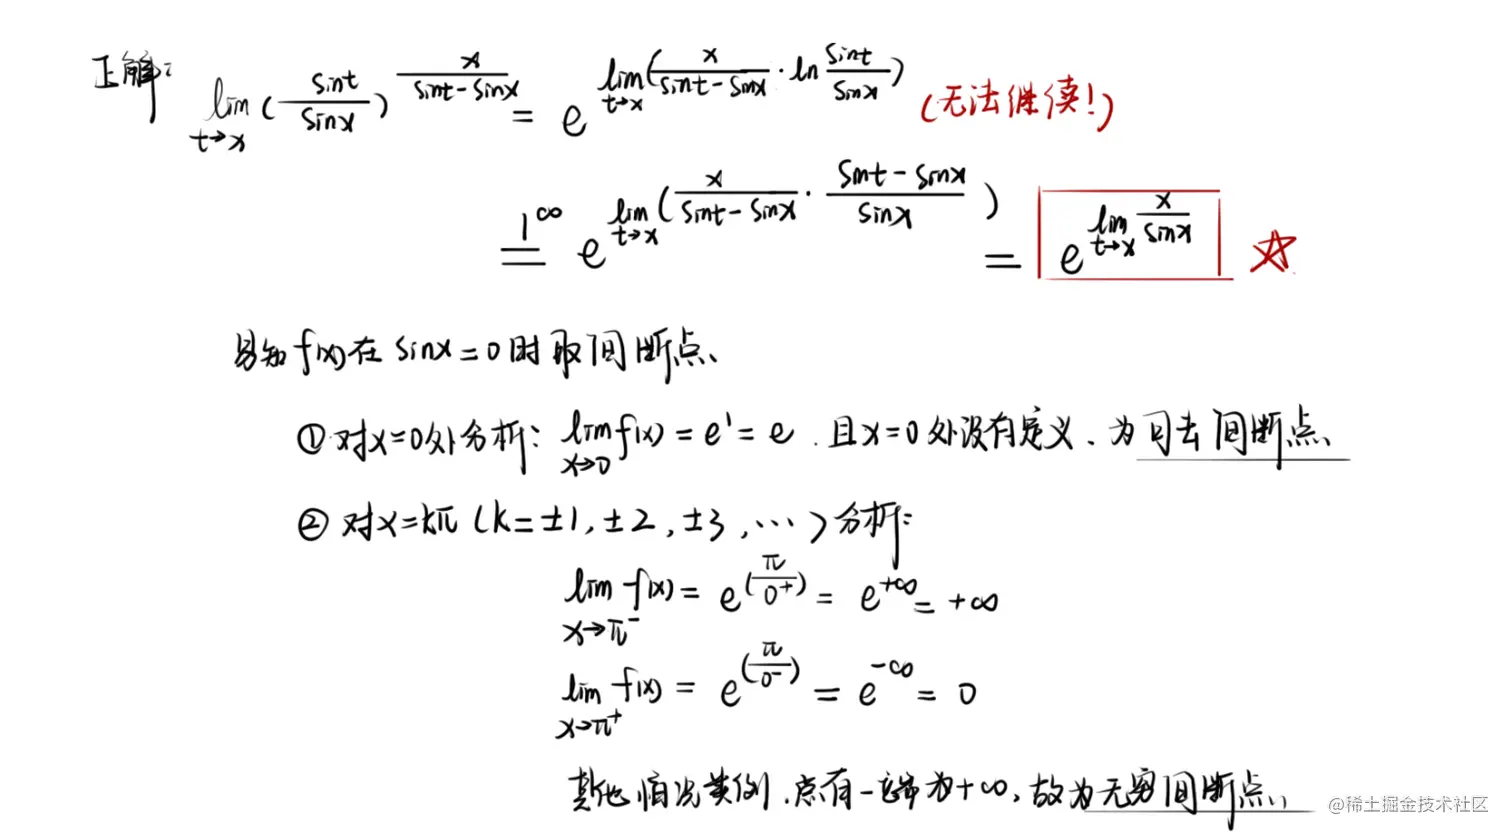 正解: lim_{t→x} (sint/sinx)^{x/(sint-sinx)} = e^{lim_{t→x}(x/(sint-sinx)·ln sint/sinx)} (无法继续!)
=^{1^∞} e^{lim_{t→x}(x/(sint-sinx)·(sint-sinx)/sinx)} = e^{lim_{t→x} x/sinx} ☆
易知f(x)在sinx=0时取间断点、
① 对x=0处分析: lim_{x→0} f(x) = e^1 = e . 且x=0处没有定义、为可去间断点、
② 对x=kπ (k=±1, ±2, ±3, ⋯) 分析:
lim_{x→π^-} f(x) = e^{(π/0^+)} = e^{+∞} = +∞
lim_{x→π^+} f(x) = e^{(π/0^-)} = e^{-∞} = 0
其他情况类似、点有一端为+∞, 故为无穷间断点、
@稀土掘金技术社区